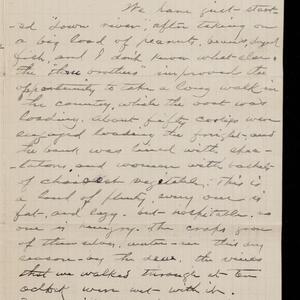 We have just start-
ed "down river" after taking on
a big load of peanuts, dried
fish, and I don't know what else.
The "three brothers" improved the
opportunity to take a long walk in
the country, while the boat was
loading. About fifty coolies were
engaged loading the freight, and
the bank was lined with spec-
tators, and women with baskets
of vegetable. This is
a land of plenty, every one is
fat, and lazy, but hospitable, no
one is hungry. The crops grow
of themselves, water in this dry
season by the dew, the vines
that we walked through at ten
oclock were wet with it.